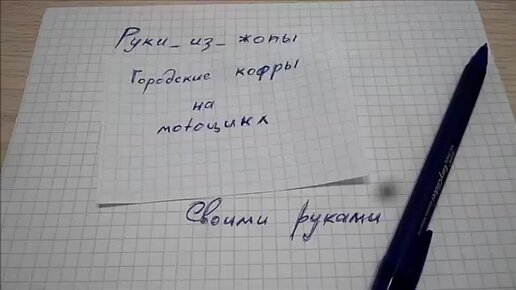 Руки_из_жопы
Городские кофры
на
мотоцикл
Своими руками